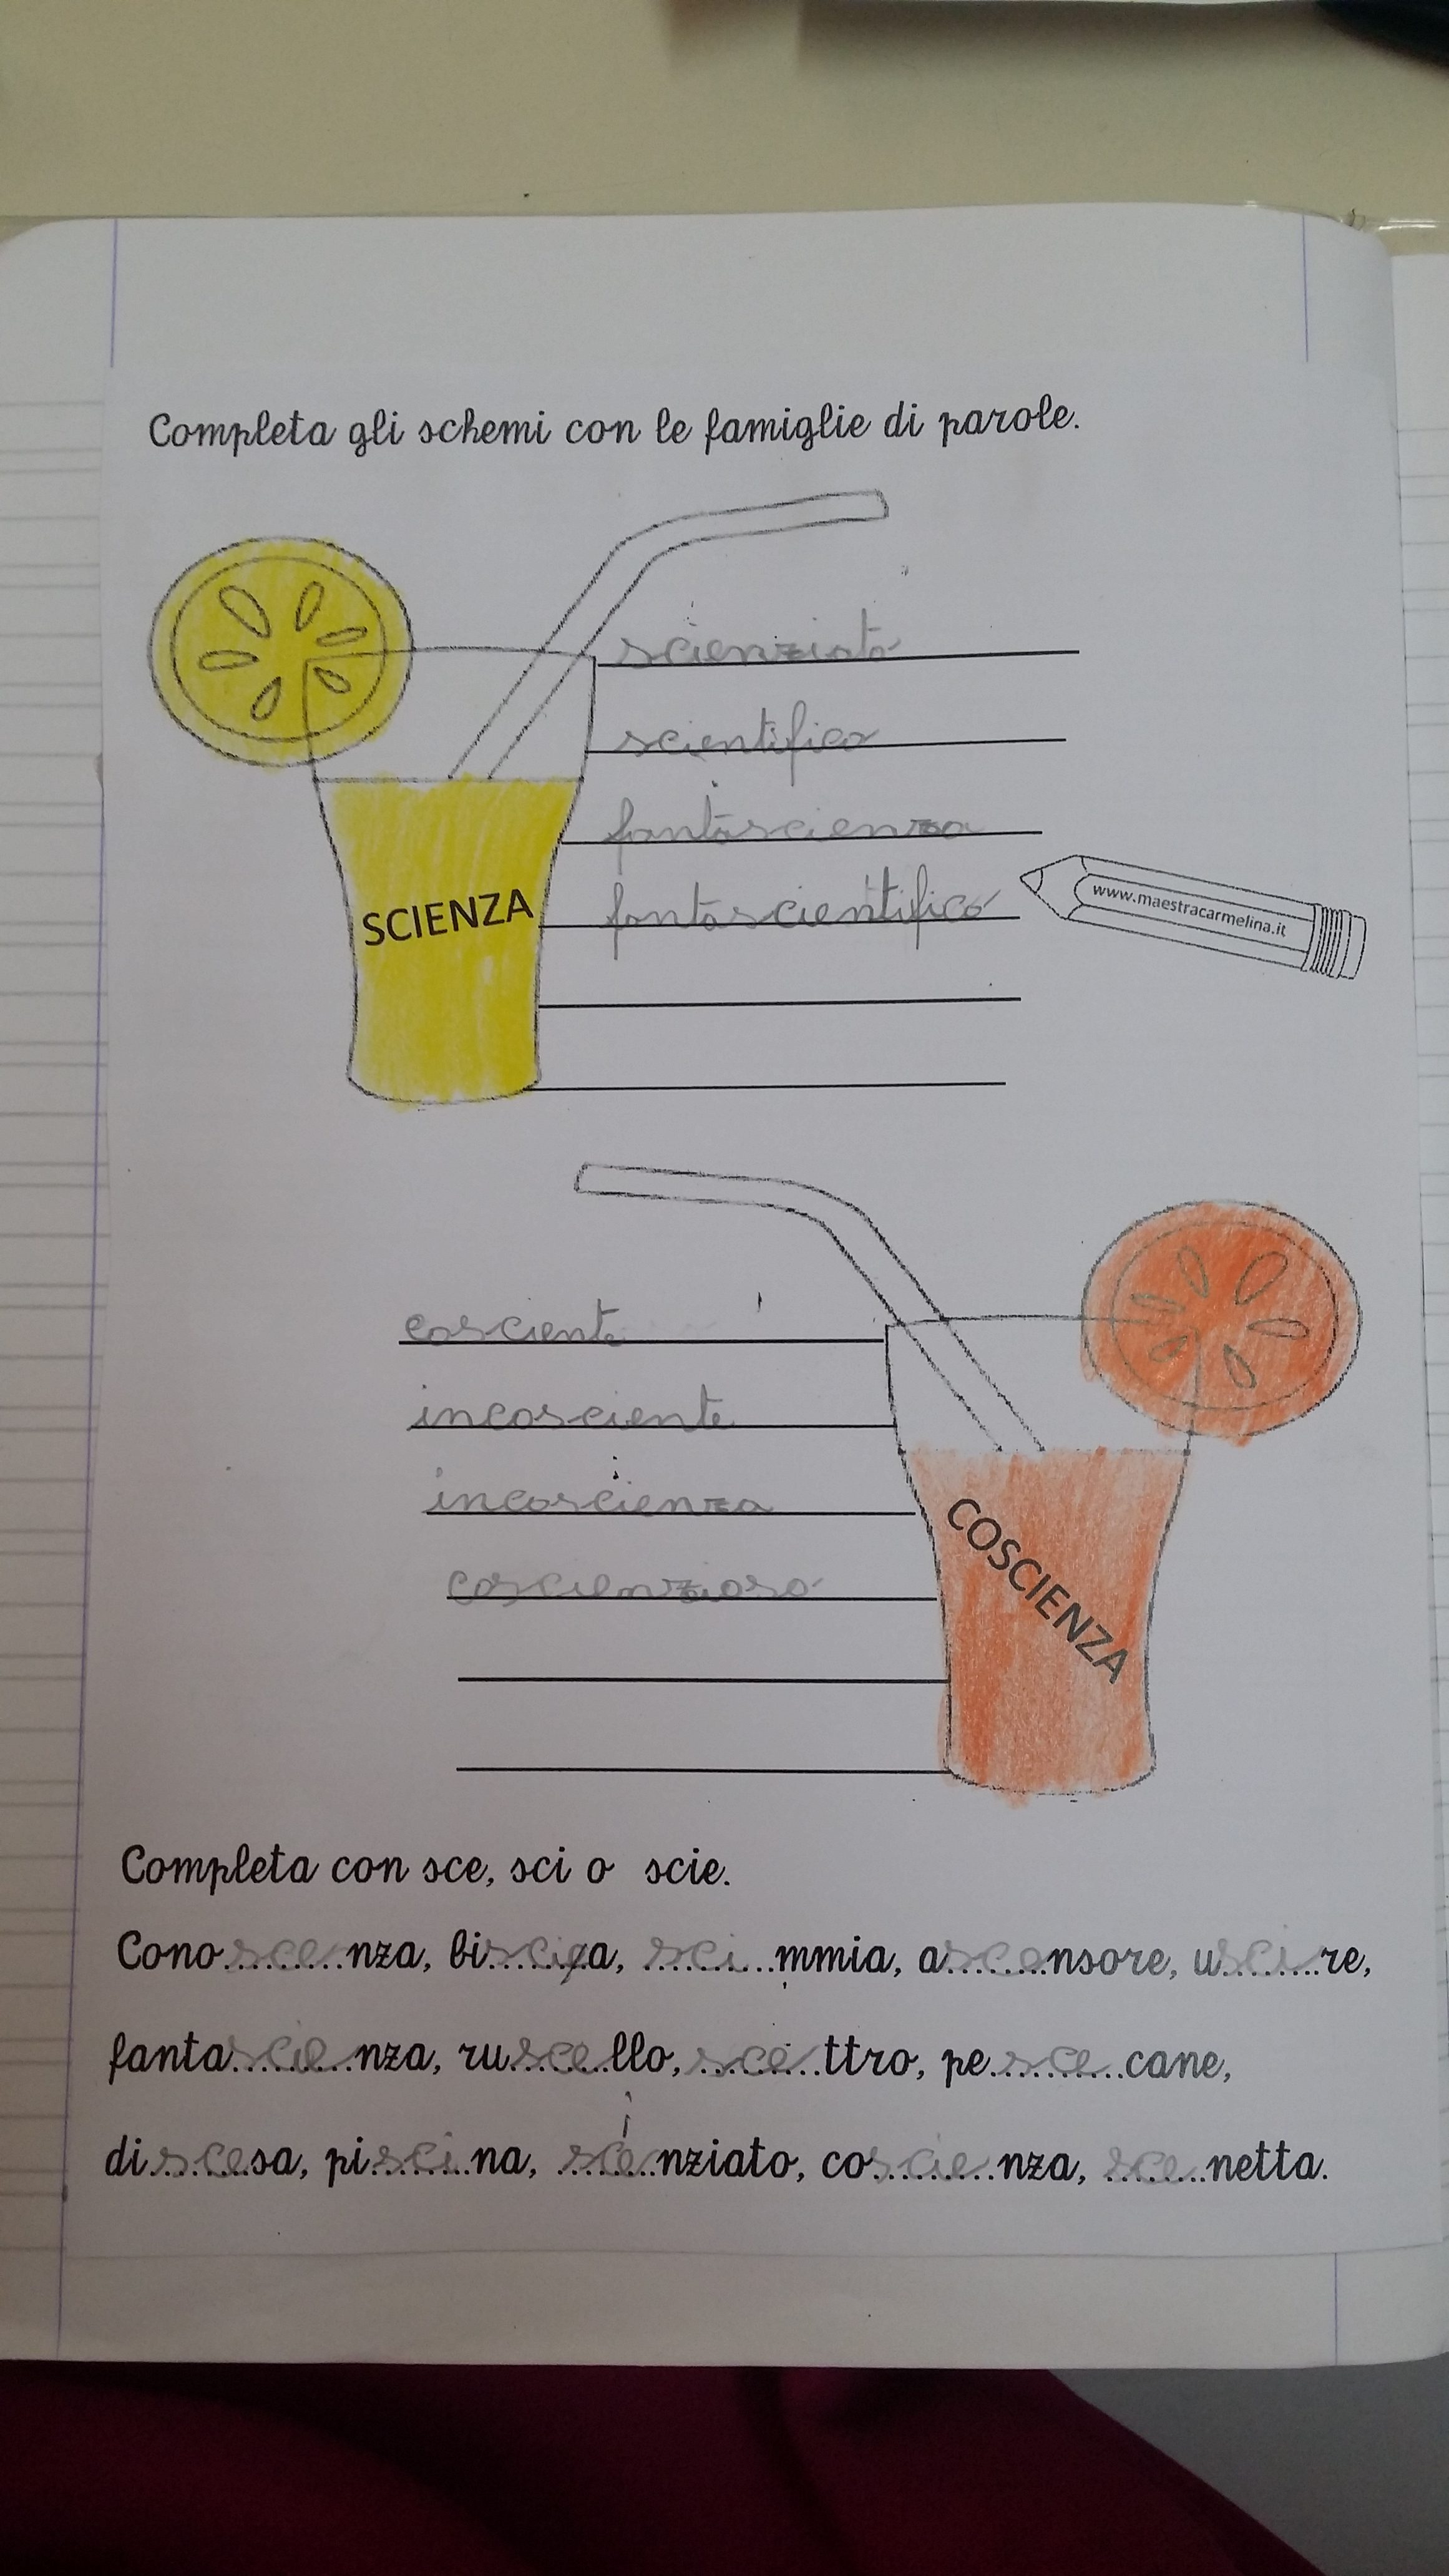 Completa gli schemi con le famiglie di parole.
scienziato
scientifico
fantascienza
SCIENZA
fantascientifico
www.maestracarmelina.it
cosciente
incosciente
incoscienza
COSCIENZA
coscienzioso
Completa con sce, sci o scie.
Cono..sce..nza, bi..sci..a, ..sci..mmia, a..sce..nsore, u..sci..re,
fanta..scie..nza, ru..sce..llo, ..sce..ttro, pe..sce..cane,
di..sce..sa, pi..sci..na, ..scie..nziato, co..scie..nza, ..sce..netta.